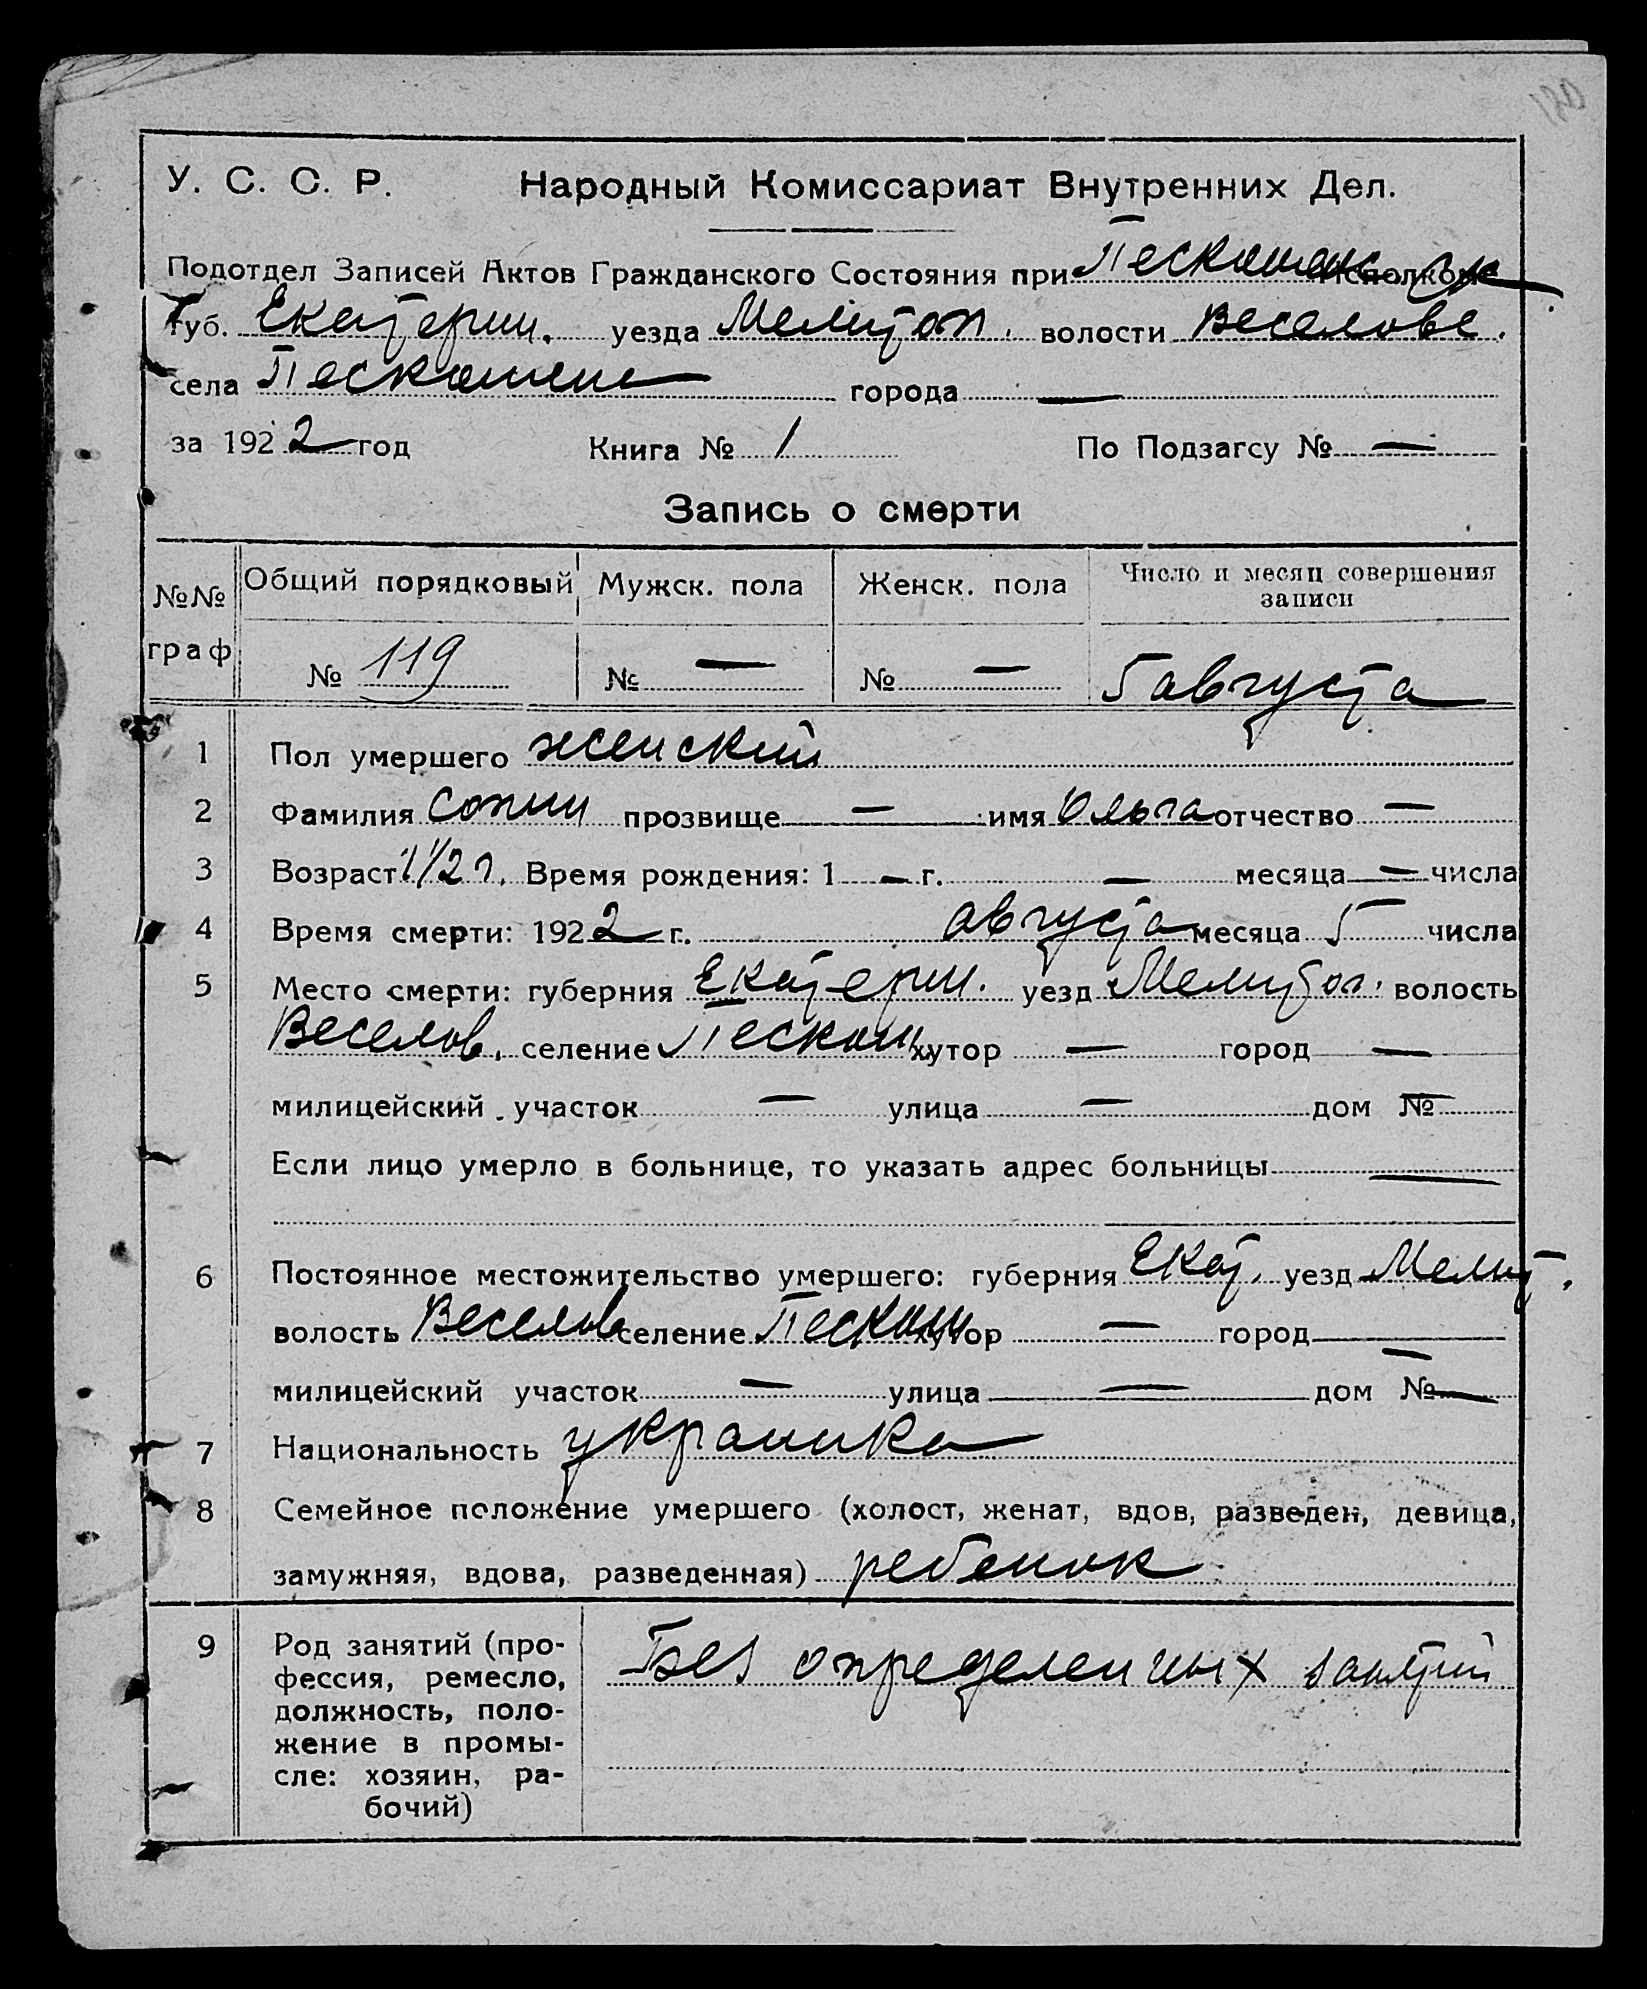 У. С. С. Р. Народный Комиссариат Внутренних Дел.
Подотдел Записей Актов Гражданского Состояния при Исполкоме
Губ. Екатерин. уезда Мелитоп. волости Веселовс.
села города —
за 1922 год Книга № 1 По Подзагсу № —
Запись о смерти
№№ граф Общий порядковый Мужск. пола Женск. пола Число и месяц совершения записи
№ 119 № — № — 5 августа
1 Пол умершего женский
2 Фамилия прозвище — имя Ольга отчество —
3 Возраст 1 1/2 г. Время рождения: 1 — г. — месяца — числа
4 Время смерти: 1922 г. августа месяца 5 числа
5 Место смерти: губерния Екатерин. уезд Мелитоп. волость
Веселов. селение Пескош хутор — город —
милицейский участок — улица — дом № —
Если лицо умерло в больнице, то указать адрес больницы —
6 Постоянное местожительство умершего: губерния Екат. уезд Мелит.
волость Веселов селение Пескош хутор — город —
милицейский участок — улица — дом № —
7 Национальность украинка
8 Семейное положение умершего (холост, женат, вдов, разведен, девица,
замужняя, вдова, разведенная) ребенок
9 Род занятий (про- Без определенных занятий
фессия, ремесло,
должность, поло-
жение в промы-
сле: хозяин, ра-
бочий)